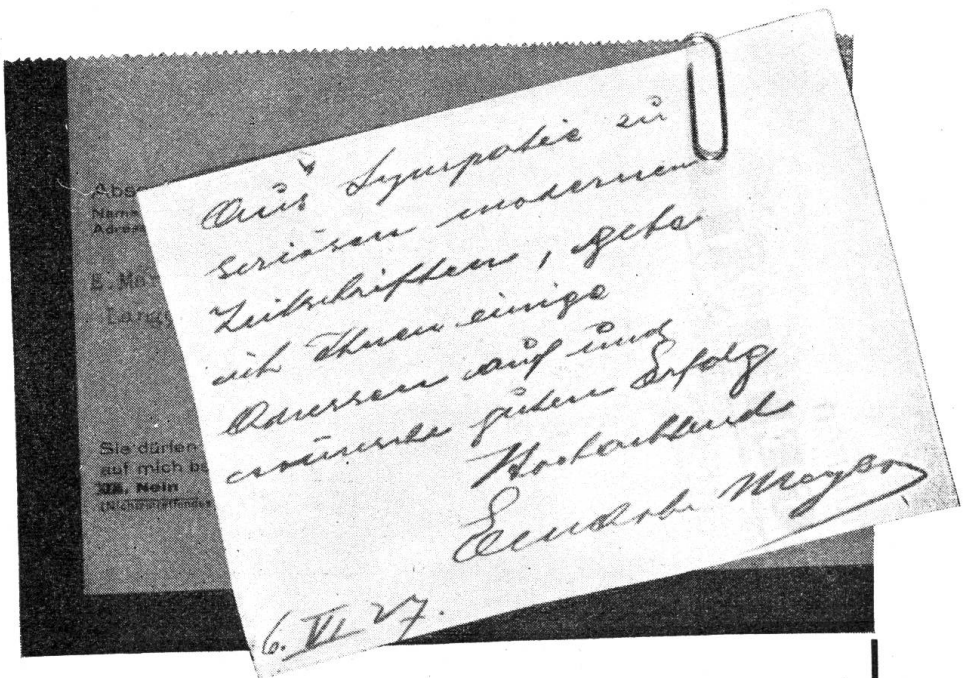 Abs
Name
Adress
E. Ma
Lang
Sie dürfen
auf mich be
Nein
(Nichtzutreffendes
Aus Sympatie zu
seriösen modernen
Zeitschriften, gebe
ich Ihnen einige
Adressen auf und
wünsche guten Erfolg
Hochachtend
Meyer
6. VI 27.